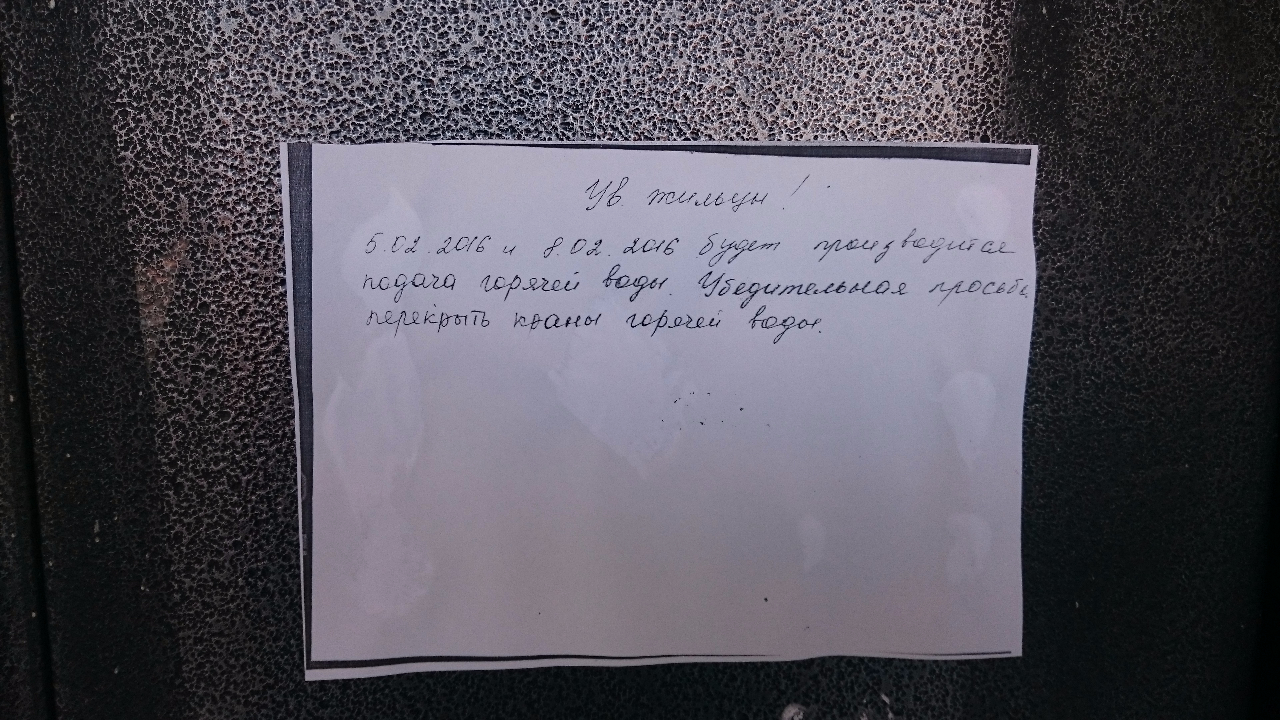 Ув. жильцы!
5.02.2016 и 8.02.2016 будет производится
подача горячей воды. Убедительная просьба
перекрыть краны горячей воды.